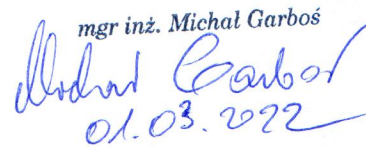 mgr inż. Michał Garboś
Michał Garboś
01.03.2022